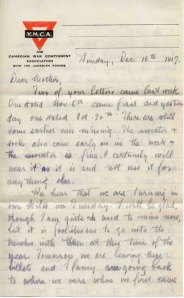 Y.M.C.A.
CANADIAN WAR CONTINGENT
ASSOCIATION
WITH THE CANADIAN FORCES
Sunday, Dec 16th 1917.
Dear Mother,
Two of your letters came last week.
One dated Nov 6th came first and yester
day one dated Oct 30th. There are still
some earlier ones missing. The sweater &
socks also came early in the week &
the sweater is fine. I certainly will
wear it as it is and not use it for
anything else.
We hear that we are turning in
our kilts on Tuesday. I will be glad,
though I am quite used to mine now,
but it is foolishness to go into the
trenches with them at this time of the
year. Tomorrow we are leaving these
billets and I fancy are going back
to where we were when we first came